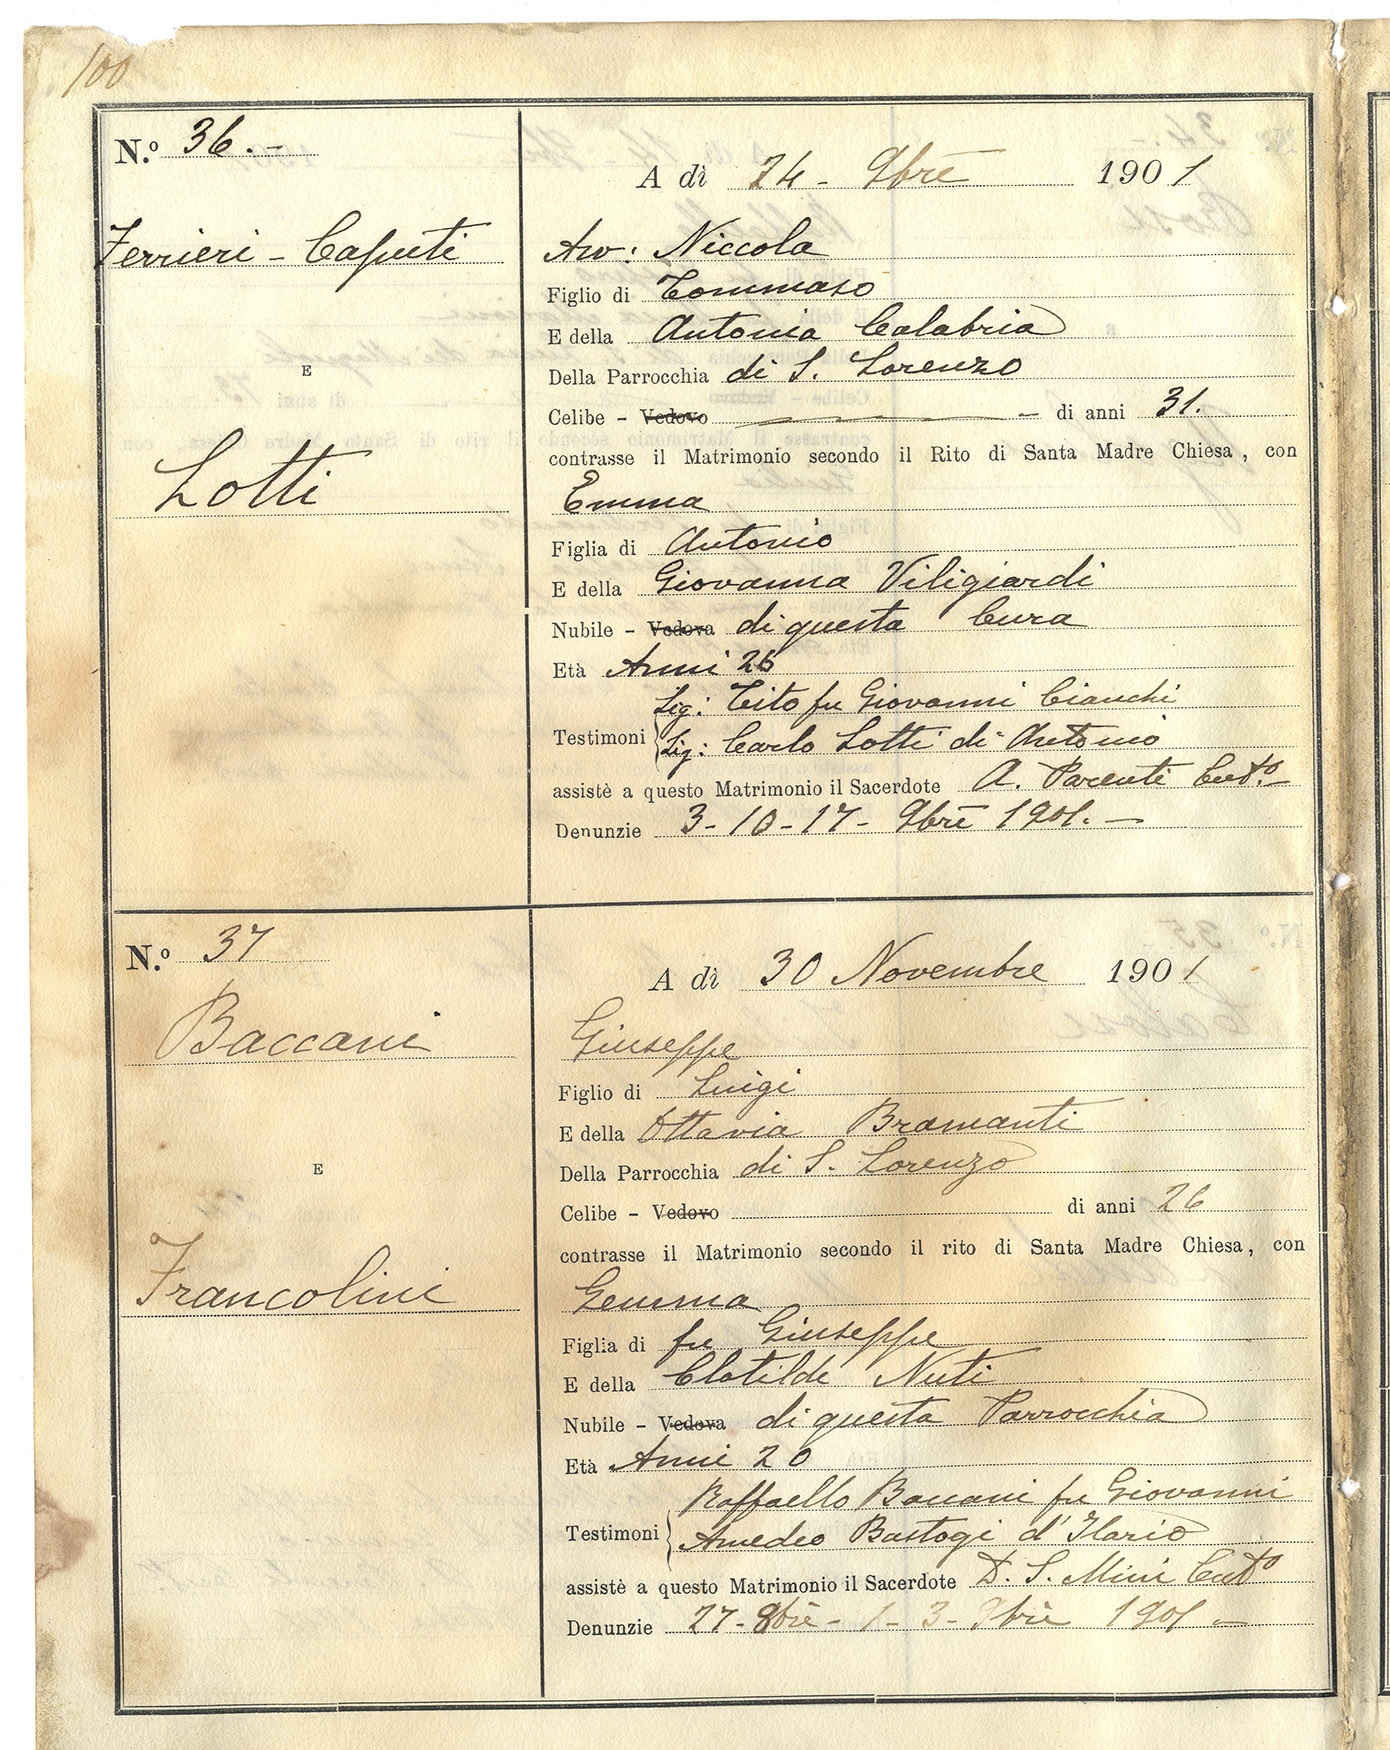 100
N.º 36. -
A dì 24 - 9bre 1901
Ferrieri - Caputi
E
Lotti
Avv: Niccola
Figlio di Tommaso
E della Antonia Calabria
Della Parrocchia di S. Lorenzo
Celibe - Vedovo di anni 31.
contrasse il Matrimonio secondo il Rito di Santa Madre Chiesa, con
Emma
Figlia di Antonio
E della Giovanna Viligiardi
Nubile - Vedova di questa Cura
Età Anni 26
Sig: Tito fu Giovanni Cianchi
Testimoni Sig: Carlo Lotti di Antonio
assistè a questo Matrimonio il Sacerdote A. Parenti Curº
Denunzie 3 - 10 - 17 - 9bre 1901. -
N.º 37
A dì 30 Novembre 1901
Baccani
E
Francolini
Giuseppe
Figlio di Luigi
E della Ottavia Bramanti
Della Parrocchia di S. Lorenzo
Celibe - Vedovo di anni 26
contrasse il Matrimonio secondo il rito di Santa Madre Chiesa, con
Gemma
Figlia di fu Giuseppe
E della Clotilde Nuti
Nubile - Vedova di questa Parrocchia
Età Anni 20
Raffaello Baccani fu Giovanni
Testimoni Amedeo Bastogi d'Ilario
assistè a questo Matrimonio il Sacerdote D. S. Mini Curº
Denunzie 27 - 8bre - 1 - 3 - 9bre 1901 -